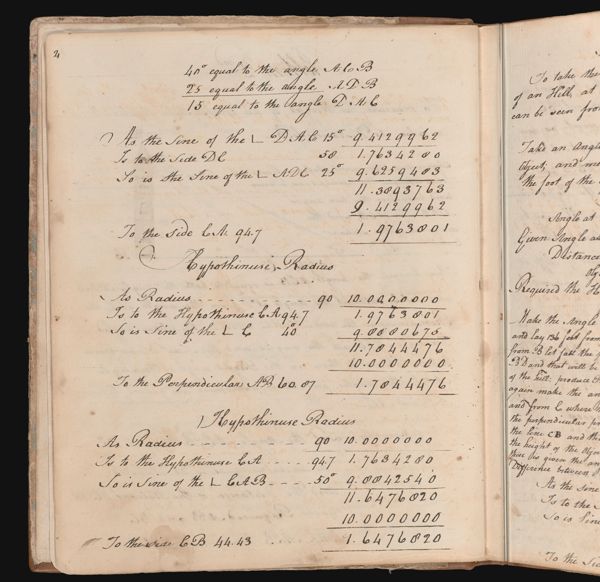 2
40° equal to the angle A C B
25 equal to the angle A D B
15 equal to the angle D A C
As the Sine of the ∟ D A C 15° 9.4129962
Is to the Side D C 58 1.7634280
So is the Sine of the ∟ A D C 25° 9.6259483
11.3893763
9.4129962
To the Side C A. 94.7 1.9763801
Hypothinuse, Radius
As Radius 90 10.0000000
Is to the Hypothinuse C A 94.7 1.9763801
So is Sine of the ∟ C 40° 9.8080675
11.7844476
10.0000000
To the Perpendicular A B 60.87 1.7844476
Hypothinuse Radius
As Radius 90 10.0000000
Is to the Hypothinuse C A 947 1.7634280
So is Sine of the ∟ C A B 50° 9.8842540
11.6476820
10.0000000
To the Side C B 44.43 1.6476820
To take the
of an Hill, at
can be seen from
Take an Angle
Object, and
the foot of the
Angle at
Given Angle
Distance
Required the
Make the Angle
and lay 136 feet from
from B let fall the
B D and that will be
of the hill: produce
again make the
and from C where
the perpendicular
the line C B and
the height of the
the given the
Difference between
As the Sine
Is to the
So is Sine
To the Side